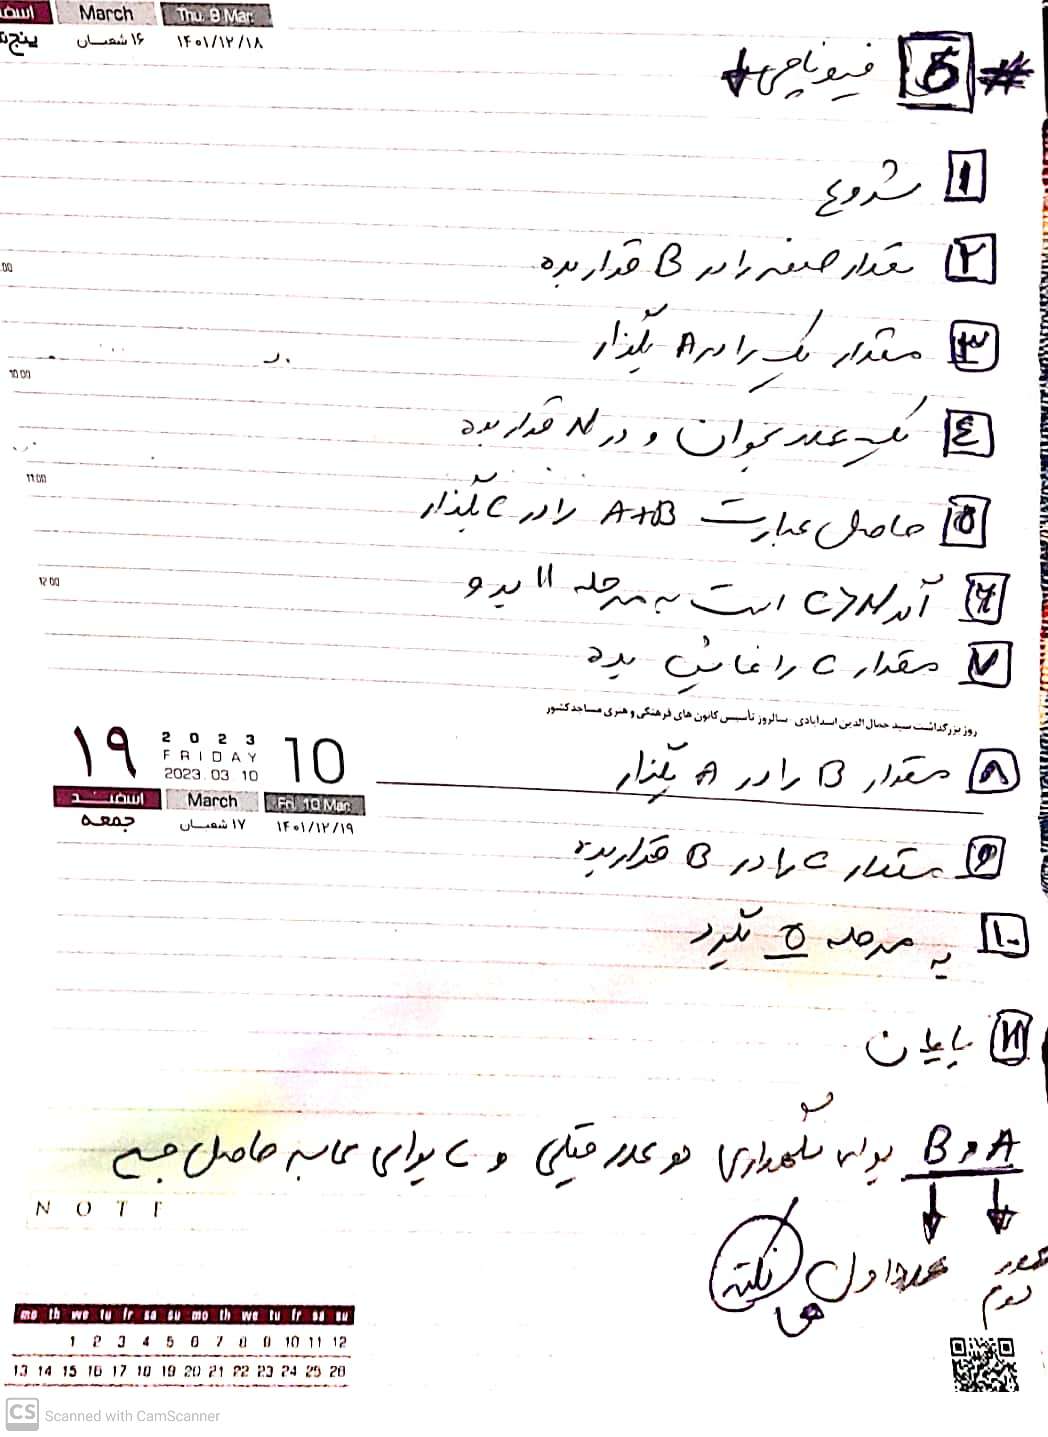 اسفند March Thu. 9 Mar.
پنج ۱۶ شعبان ۱۴۰۱/۱۲/۱۸
# 5 فیبوناچی ↓
۱ شروع
۲ مقدار صفر را در B قرار بده
۳ مقدار یک را در A بگذار
10:00
٤ یک عدد بخوان و در N قرار بده
11:00
۵ حاصل عبارت A+B را در C بگذار
12:00
۶ اگر C>N است به مرحله ۱۱ برو
۷ مقدار C را نمایش بده
روز بزرگداشت سید جمال الدین اسدآبادی - سالروز تأسیس کانون های فرهنگی و هنری مساجد کشور
۱۹ 2023 FRIDAY 2023.03.10 10
۸ مقدار B را در A بگذار
اسفند March Fri. 10 Mar.
جمعه ۱۷ شعبان ۱۴۰۱/۱۲/۱۹
۹ مقدار C را در B قرار بده
۱۰ به مرحله ۵ برگرد
۱۱ پایان
A و B برای نگهداری دو عدد قبلی و C برای محاسبه حاصل جمع
NOTE
عدد دوم عدد اول نکته
mo th we tu fr sa su mo th we tu fr sa su
1 2 3 4 5 6 7 8 9 10 11 12
13 14 15 16 17 18 19 20 21 22 23 24 25 26
CS Scanned with CamScanner